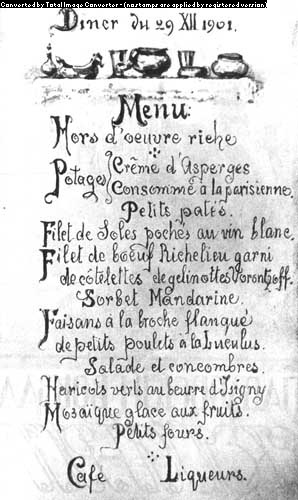 Converted by Total Image Converter - (nag stamps are applied by registered version)
Diner du 29 XII 1901.
Menu:
Hors d'oeuvre riche
Potages { Crême d'Asperges
Consommé à la parisienne.
Petits patés.
Filet de Soles pochés au vin blanc.
Filet de boeuf Richelieu garni
de côtelettes de gelinottes Vorontzoff.
Sorbet Mandarine.
Faisans à la broche flanqué
de petits poulets à la Luculus.
Salade et concombres.
Haricots verts au beurre d'Isigny
Mosaïque glace aux fruits.
Petits fours.
Café Liqueurs.